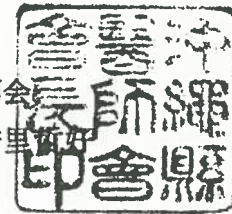 沖繩縣
醫師會
會長印
会
里